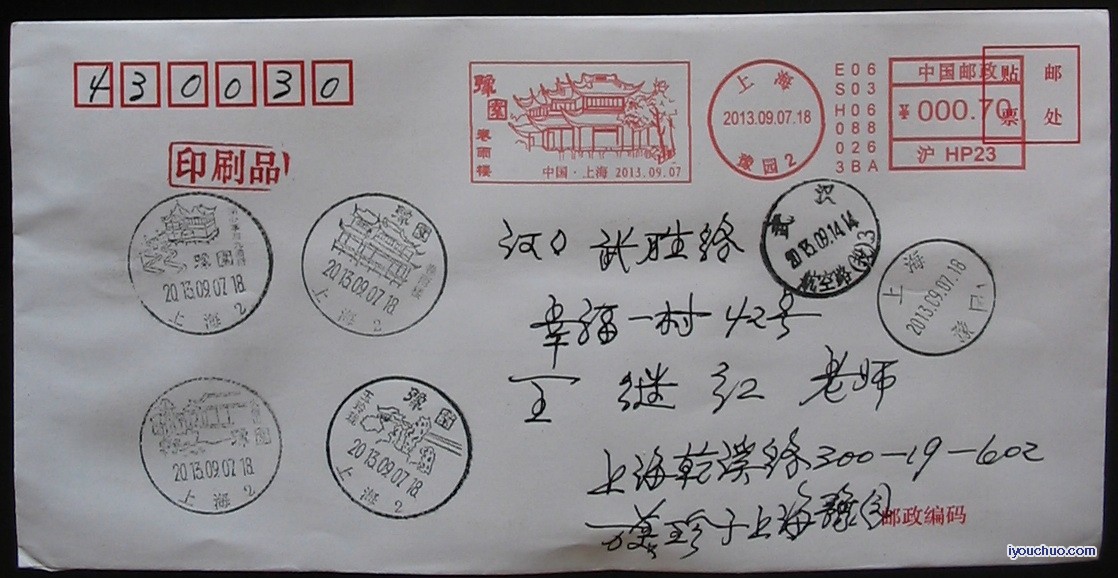 430030
印刷品
豫园
卷雨楼
中国·上海 2013.09.07
上海
2013.09.07.18
豫园 2
E06
S03
H06
088
026
3BA
中国邮政
¥000.70
沪 HP23
贴邮
票处
豫園
2013.09.07.18
上海 2
豫園
2013.09.07.18
上海 2
武汉
2013.09.14.14
航空路(投)3
上海
2013.09.07.18
豫园
汉口 武胜路
幸福一村42号
王继红 老师
豫園
2013.09.07.18
上海 2
玉玲珑
豫園
2013.09.07.18
上海 2
上海乾溪路300-19-602
于上海豫园
邮政编码
iyouchuo.com